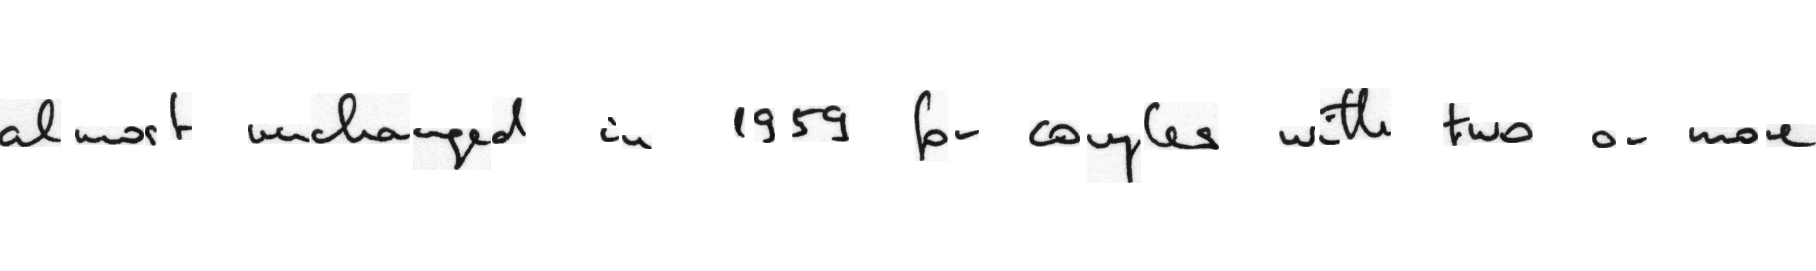 almost unchanged in 1959 for couples with two or more